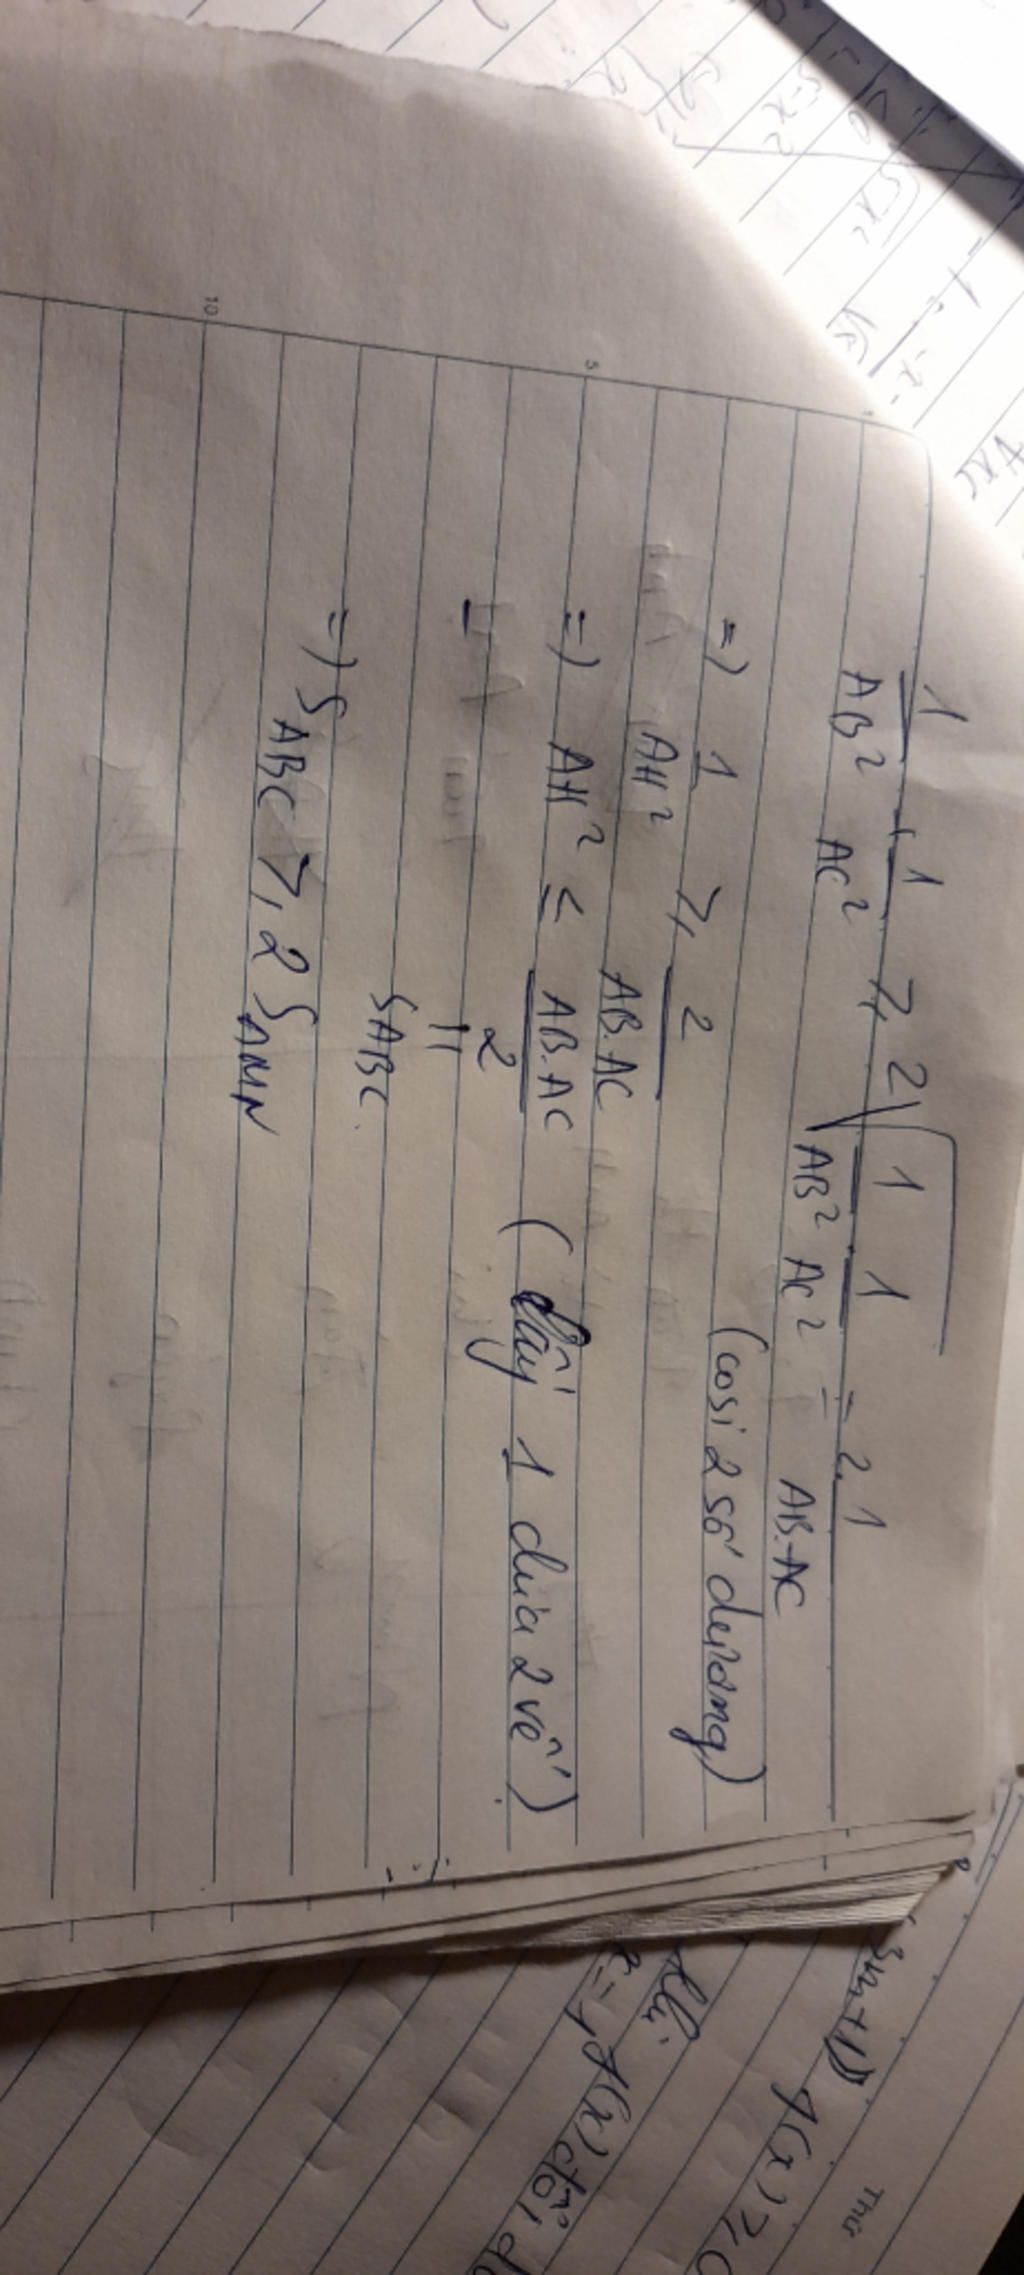 1/AB² + 1/AC² ≥ 2√(1/AB² · 1/AC²) = 2·1/AB·AC
(cosi 2 số dương)
=> 1/AH² ≥ 2/AB·AC
=> AH² ≤ AB·AC/2 (lấy 1 chia 2 vế)
||
SABC
=> SABC ≥ 2 SAMN
5
10
Thứ
g(x) ≥ 0
khi
x = 1